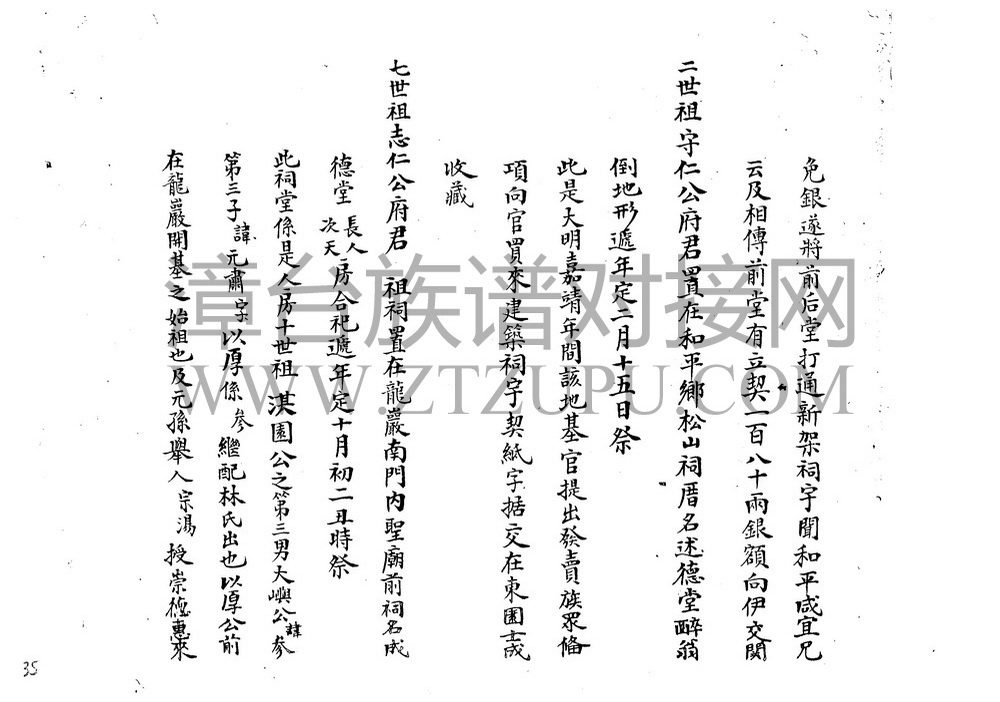 免銀遂將前后堂打通新架祠宇聞和平咸宜兄
云及相傳前堂有立契一百八十兩銀額向伊交関
二世祖守仁公府君置在和平鄉松山祠厝名述德堂醉翁
倒地形遞年定二月十五日祭
此是大明嘉靖年間該地基官提出發賣族眾備
項向官買來建築祠宇契紙字据交在東園士成
收藏
七世祖志仁公府君 祖祠置在龍巖南門內聖廟前祠名成
德堂 長人 次天 房合祀遞年定十月初二丑時祭
此祠堂係是人房十世祖淇園公之第三男大嶼公諱参
第三子諱元肅字以厚係参繼配林氏出也以厚公前
在龍巖開基之始祖也及元孫舉人宗湯授崇德惠來
35
章台族谱对接网
WWW.ZTZUPU.COM